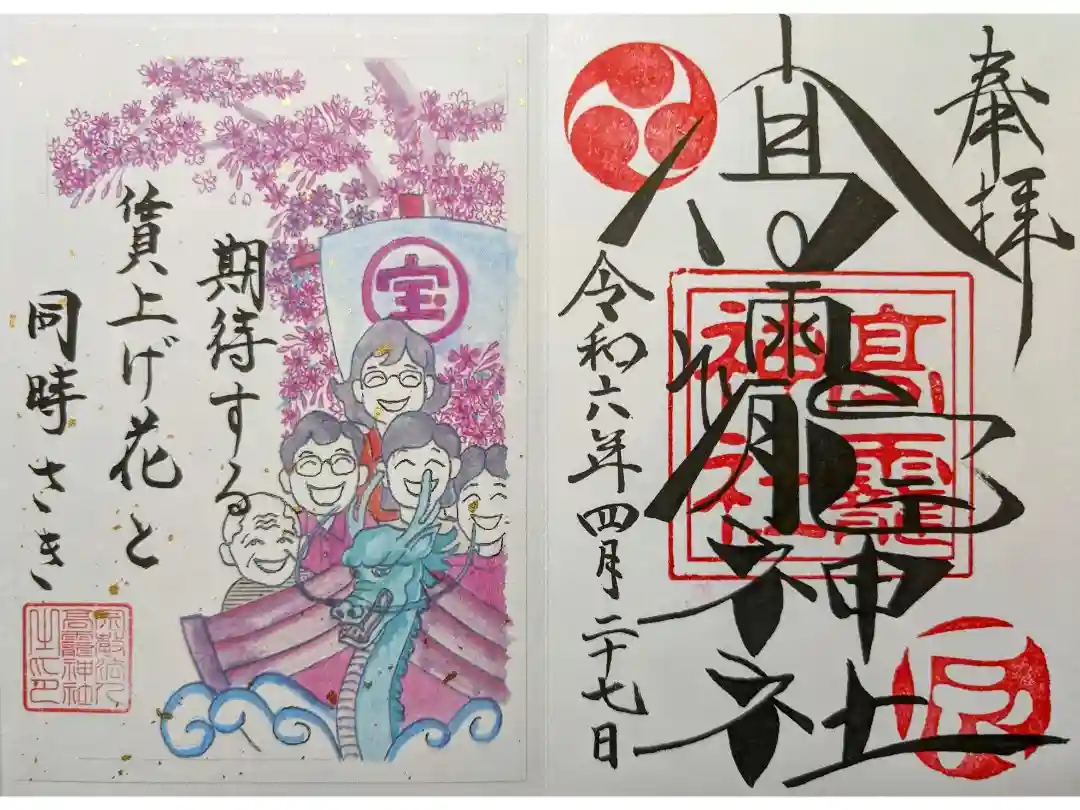 奉拝
高龗神社
高龗
神社
令和六年四月二十七日
宝
期待する
賃上げ花と
同時さき
宗教法人
高龗神社
之印